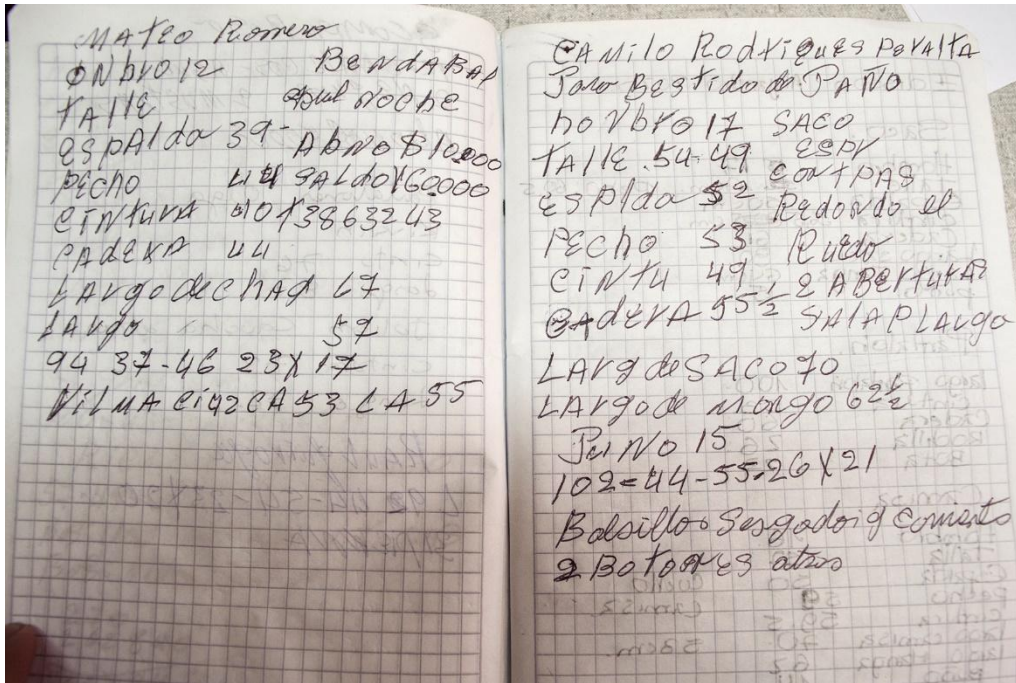 MATEO Romero
ONbro 12 BENdABAl
TAllE Asul Noche
ESpAldo 39- AbNo $10.000
PECho 44 SALdo 160.000
CiNturA 40 + 3863243
CADERA 44
LArgo de chAq 67
LArgo 57
94 37-46 23X17
VilMA Ci42CA53 LA55
CAMilo RodriguES PerAltA
Para BESTido de PAÑO
hoNbro 17 SACO
TAllE.54-49 ESPr
ESpldo 52 CONTPAS
PEcho 53 REdONdo el
CiNtu 49 RuEdo
CAdErA 55½ 2 ABErturAs
SAlAP LArgo
LArg de SACO 70
LArgo de mango 62½
PuNo 15
102=44-55.26X21
Bolsillos Sesgados
2 BotoNES atras